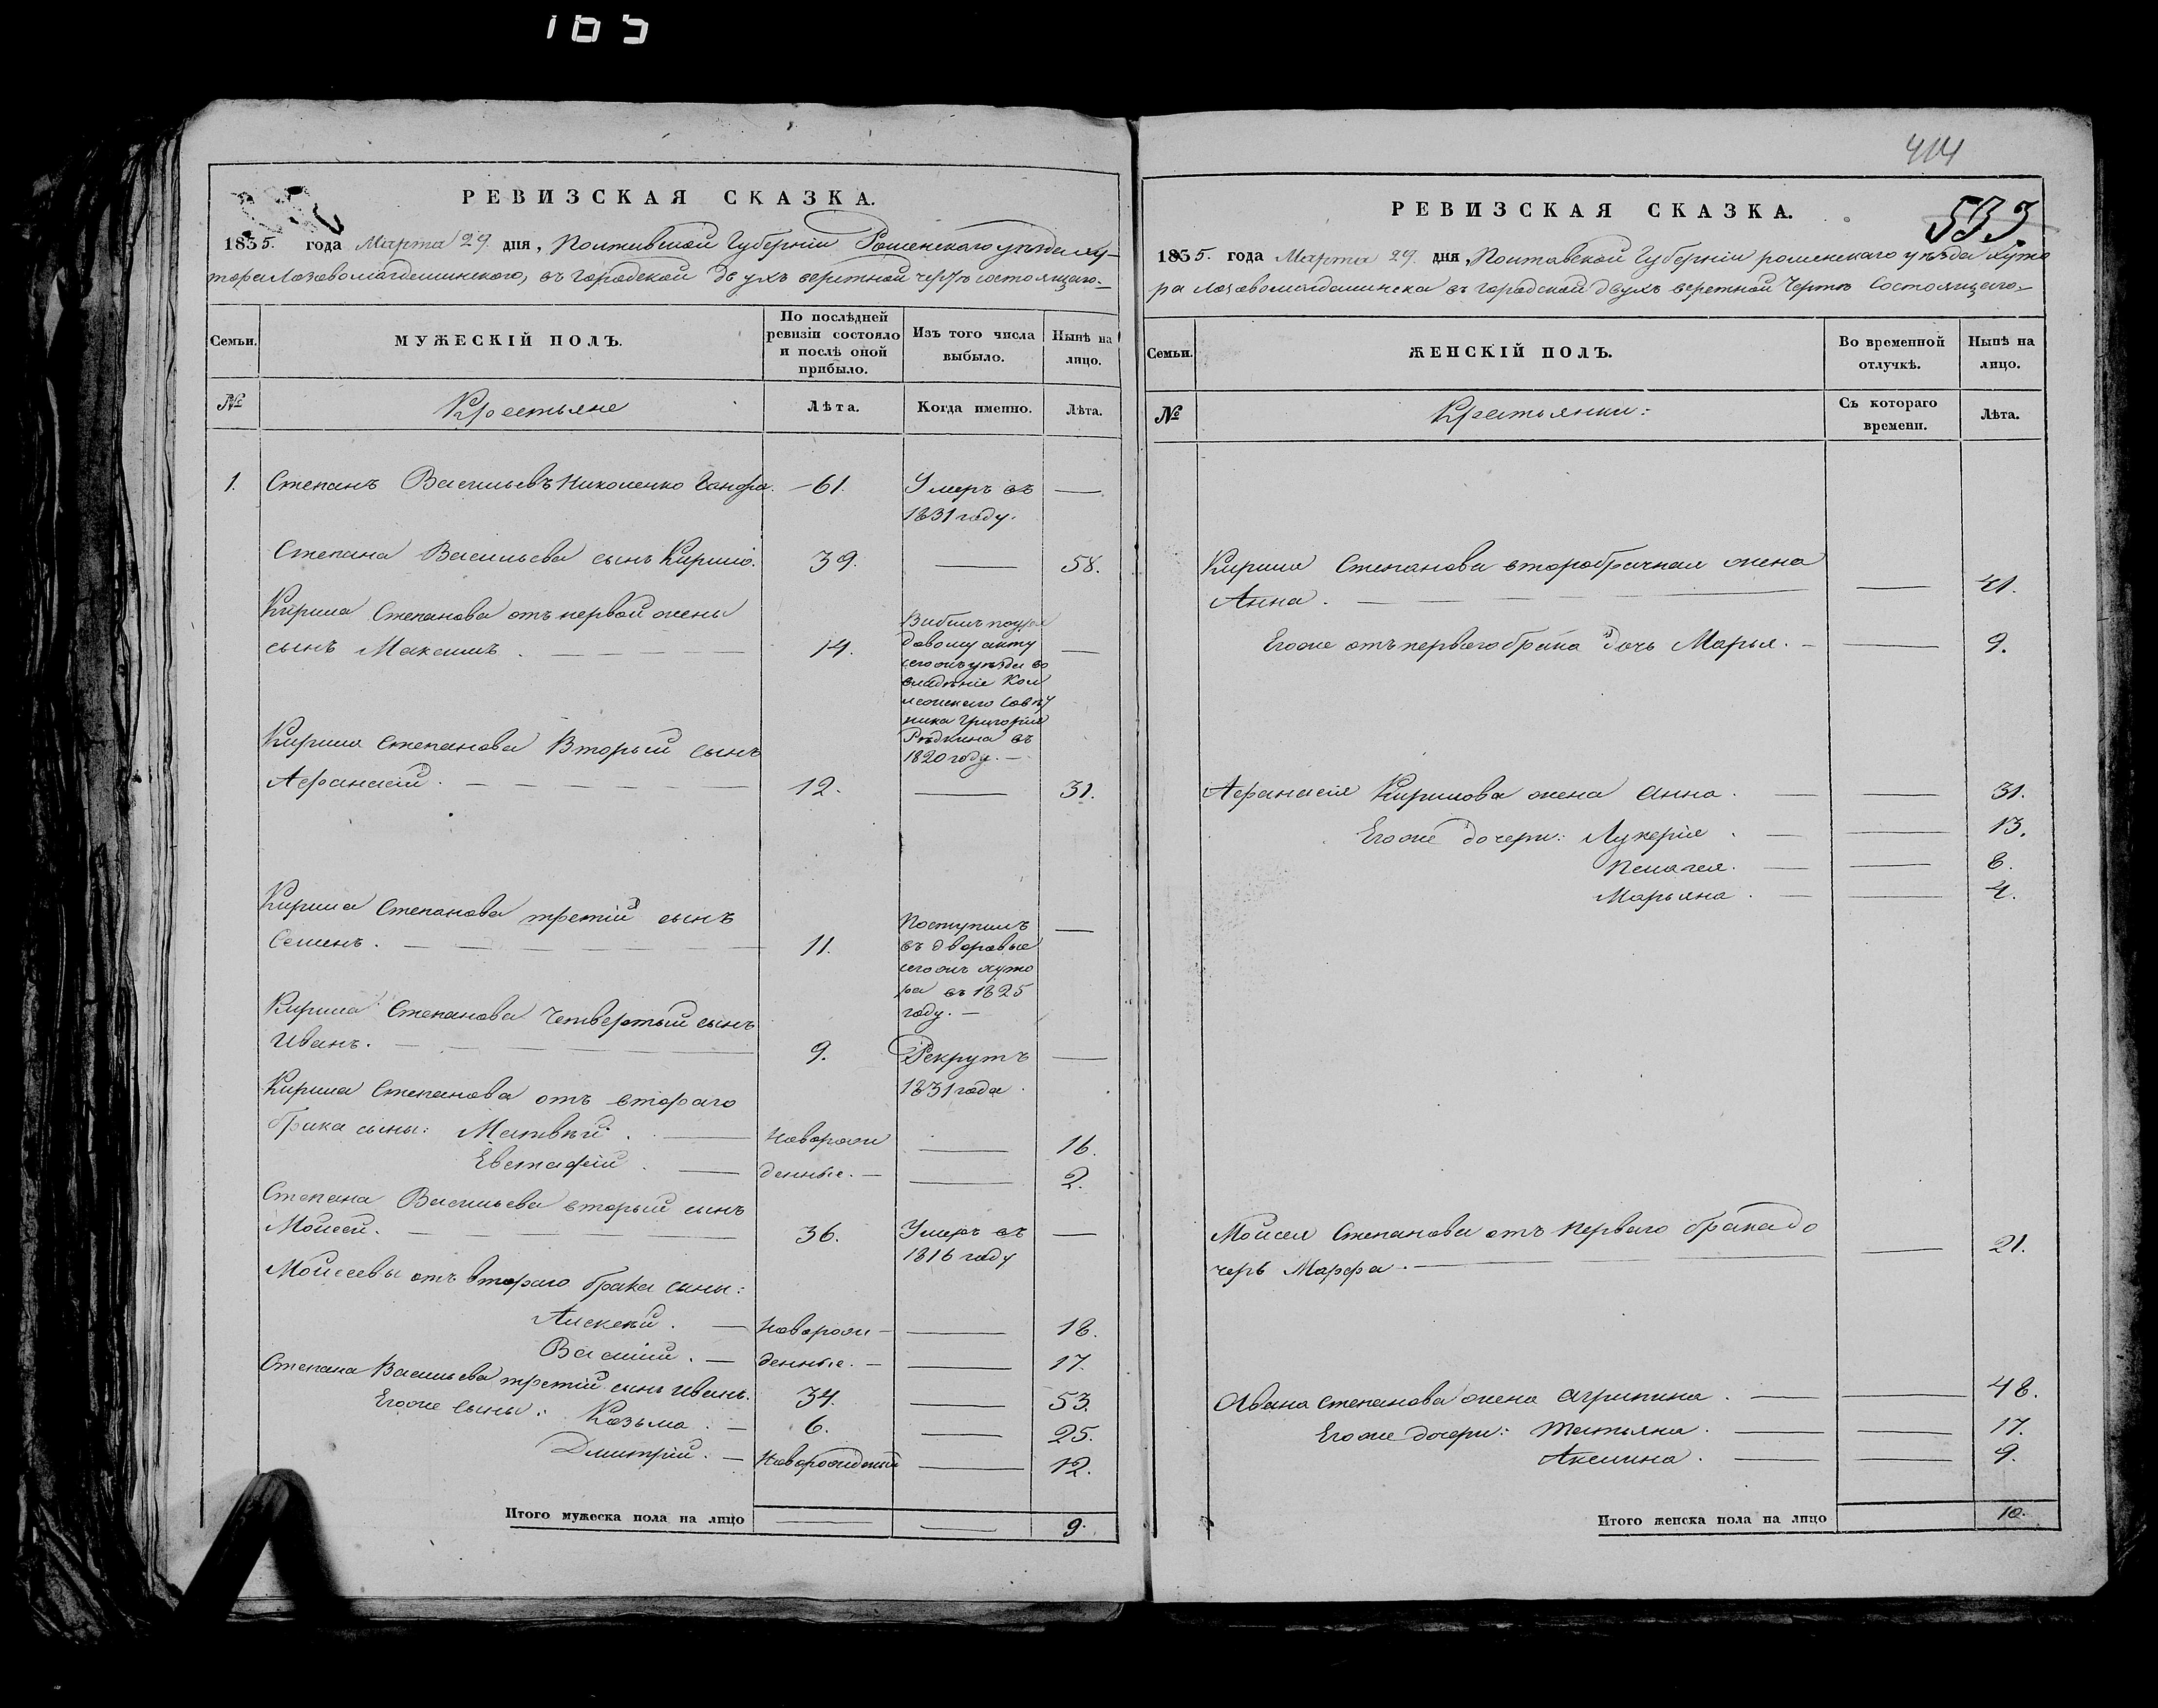 165
РЕВИЗСКАЯ СКАЗКА.
1835. года Марта 29. дня, Полтавской Губерніи Роменскаго уѣзда ху-
тора въ городской двухъ верстной чертѣ состоящаго.
Семьи.
МУЖЕСКІЙ ПОЛЪ.
По послѣдней ревизіи состояло и послѣ оной прибыло.
Изъ того числа выбыло.
Нынѣ на лицо.
№
Крестьяне
Лѣта.
Когда именно.
Лѣта.
1. Степанъ Васильевъ Николенко 61. Умеръ въ —
1831 году.
Степана Васильева сынъ Кирило. 39. — 58.
Кирила Степанова отъ первой жены
сынъ Максимъ. 14. —
Выбылъ по
довому акту
сегожъ уѣзда во
владѣніе Кол
лежскаго Совѣт
ника Григорія
Рѣдкина въ
1820 году. —
Кирила Степанова Вторый сынъ
Афанасій. 12. — 31.
Кирила Степанова третій сынъ
Семенъ. 11. —
Поступилъ
въ дворовые
сегожъ хуто
ра въ 1825
году. —
Кирила Степанова Четвертый сынъ
Иванъ. 9. Рекрутъ —
1831 года.
Кирила Степанова отъ втораго
брака сыны: Матвѣй. Новорож — 16.
Евстафій. денные. — 2.
Степана Васильева вторый сынъ
Мойсей. 36. Умеръ въ —
1816 году
Мойсеевы отъ втораго брака сыны:
Алексѣй. Новорож — 18.
Василій. денные. — 17.
Степана Васильева третій сынъ Иванъ. 34. — 53.
Егоже сыны: Козьма. 6. — 25.
Дмитрій. Новорожденый — 12.
Итого мужеска пола на лицо — — 9.
414
533
РЕВИЗСКАЯ СКАЗКА.
1835. года Марта 29. дня, Полтавской Губерніи роменскаго уѣзда Хуто
ра въ городской двухъ верстной Чертѣ Состоящаго.
Семьи.
ЖЕНСКІЙ ПОЛЪ.
Во временной отлучкѣ.
Нынѣ на лицо.
№
Крестьянки:
Съ котораго времени.
Лѣта.
Кирила Степанова второбрачная жена
Анна. — 41.
Егоже отъ перваго брака дочь Марья. — 9.
Афанасія Кирилова жена Анна. — 31.
Егоже дочери: Лукерія — 13.
Пелагея. — 8.
Марьяна. — 4.
Мойсея Степанова отъ перваго брака до
черь Марфа. — 21.
Ивана Степанова жена Агрипина. — 48.
Егоже дочери: Татьяна. — 17.
Аксинна. — 9.
Итого женска пола на лицо 10.